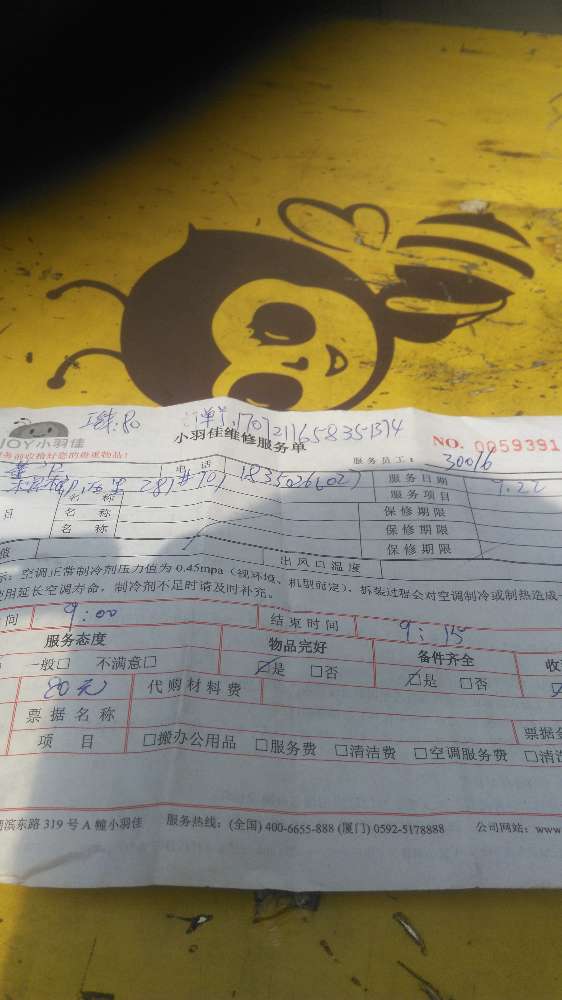 工钱:80 订单:1707211658351374
JOY小羽佳 小羽佳维修服务单 NO. 0059391
务前收拾好您的贵重物品! 服务员工: 30016
电 话 服务日期 9.22
287#707 服务项目
目 名 称 保修期限
名 称 保修期限
保修期限
值 出风口温度
示: 空调正常制冷剂压力值为 0.45mpa (视环境、机型而定)。拆装过程会对空调制冷或制热造成一
使用延长空调寿命,制冷剂不足时请及时补充。
间 9:00 结束时间 9:15
服务态度 物品完好 备件齐全 收
一般□ 不满意□ ☑是 □否 ☑是 □否
80元 代购材料费
票据名称 票据金
项 目 □搬办公用品 □服务费 □清洁费 □空调服务费 □清洗
湖滨东路 319 号 A 幢小羽佳 服务热线: (全国) 400-6655-888 (厦门) 0592-5178888 公司网站: www